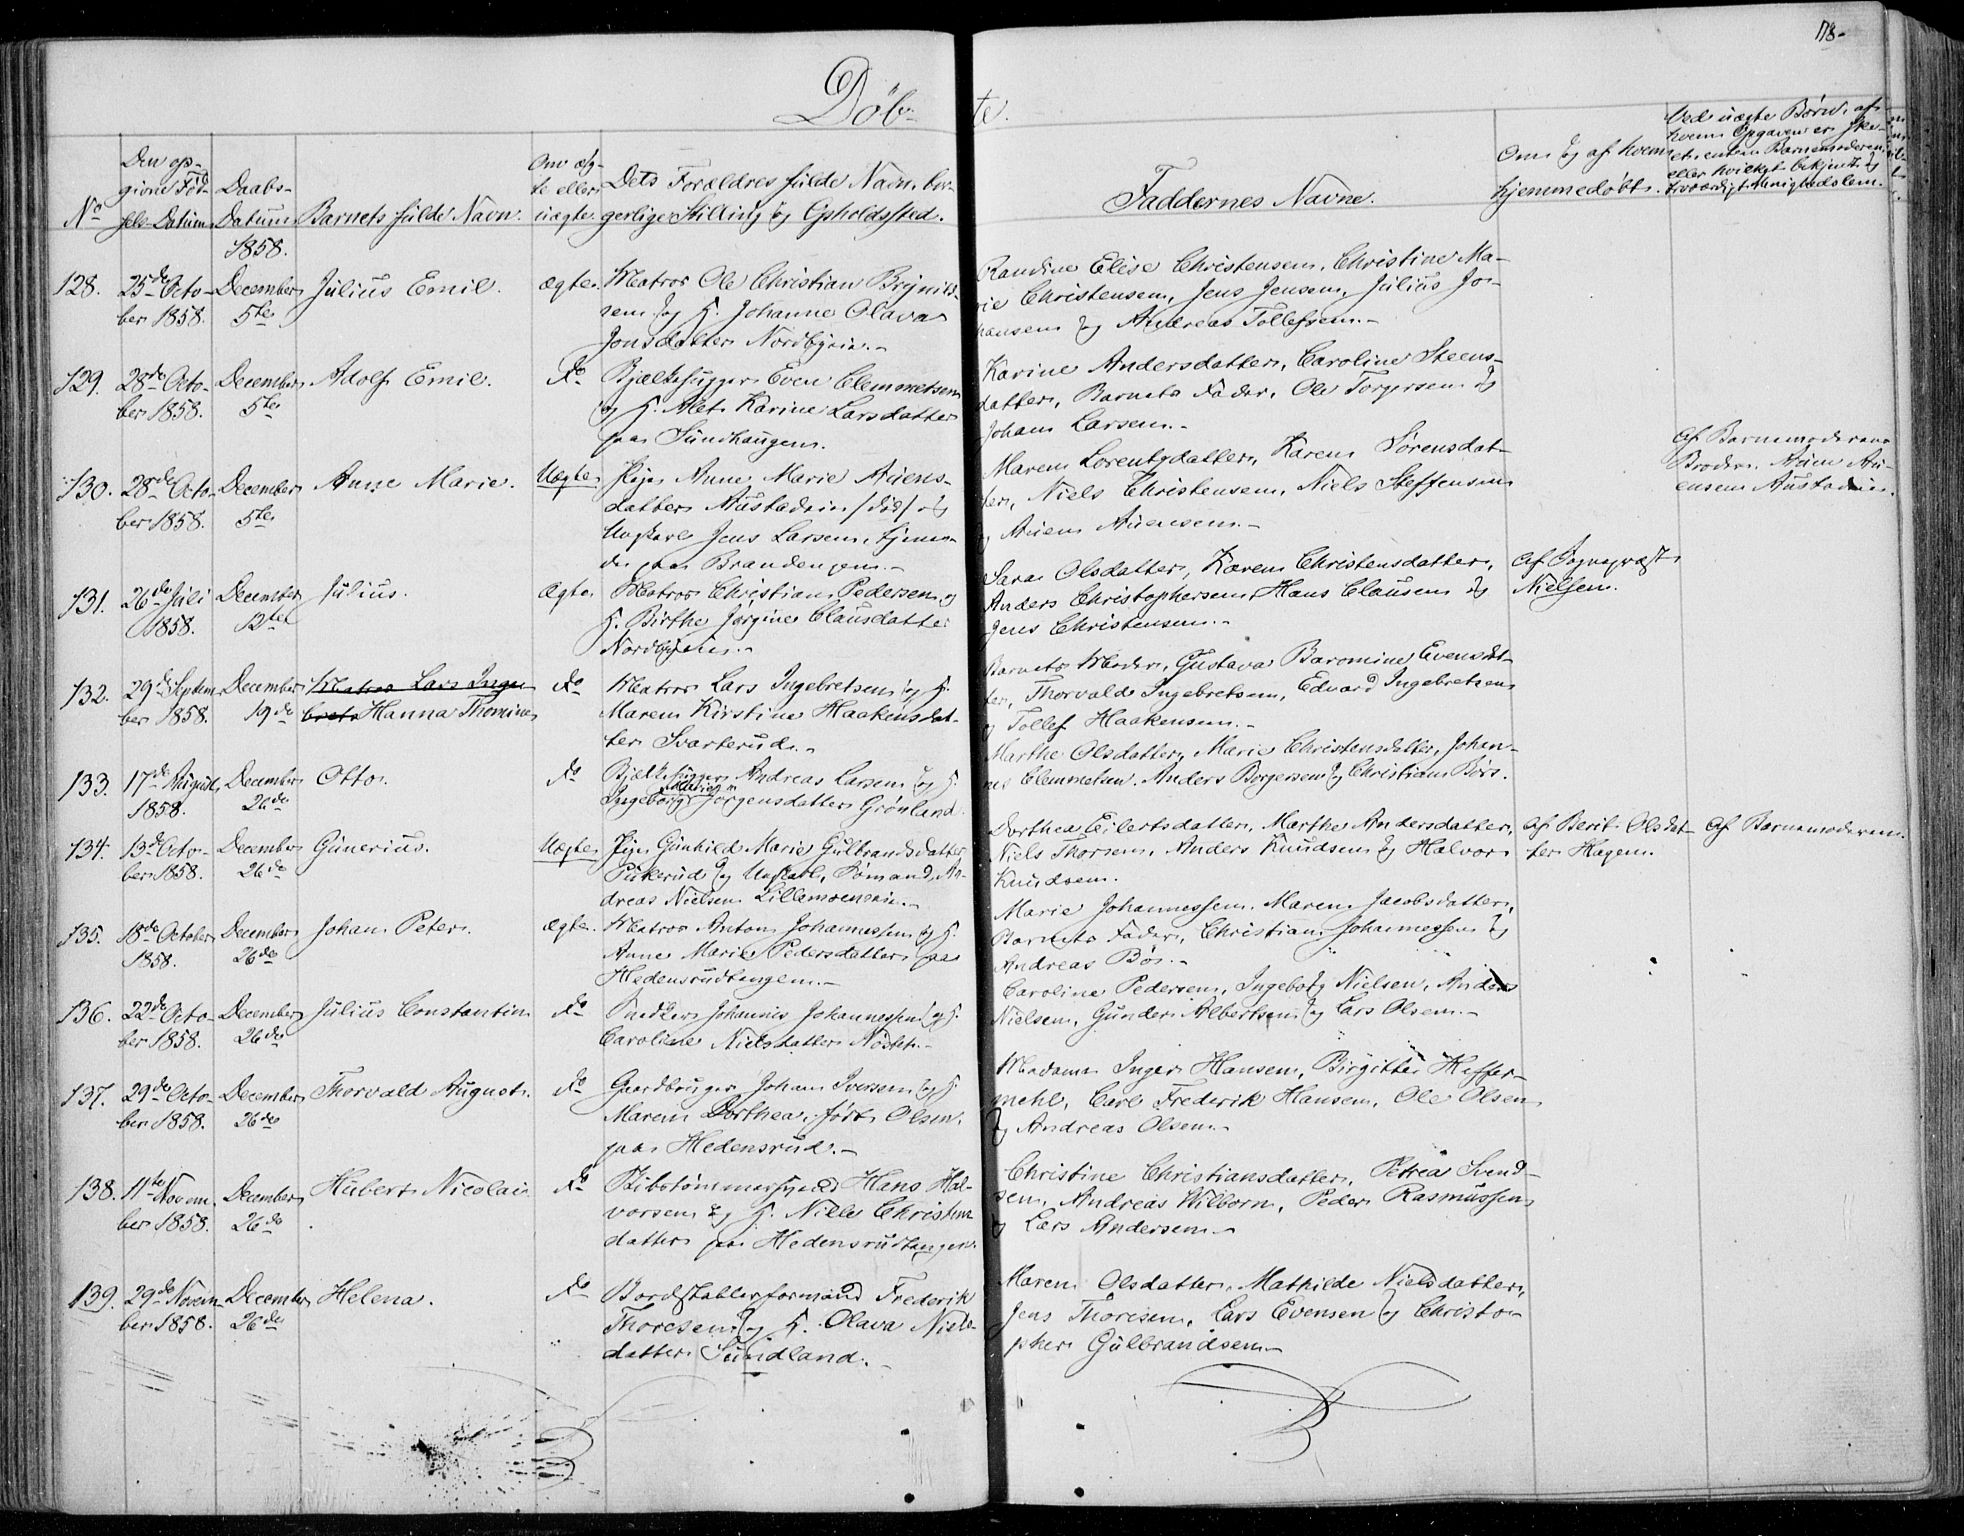 178.
Døbte.
No
Den opgivne Fødsels-Datum
Daabs-Datum
Barnets fulde Navn.
Om ægte eller uægte.
Dets Forældres fulde Navn, borgerlige Stilling og Opholdssted.
Faddernes Navne.
Om og af hvem hjemmedøbt.
Ved uægte Børn, af hvem Opgaven er skeet, enten Barnemoderen eller hvilket bekjendt og troværdigt Menighedslem.
1858.
128.
25de Octo-
ber 1858.
December
5te
Julius Emil.
ægte.
Matros Ole Christian Brynils-
sen og H. Johanne Olava
Jonsdatter Nordbyeie.-
Randine Elise Christensen, Christine Ma-
rie Christensen, Jens Jensen, Julius Jo-
hansen og Andreas Tollefsen.-
129.
28de Octo-
ber 1858.
December
5te
Adolf Emil.
Do
Bjælkehugger Even Clemmetsen
og H. Alet Karine Larsdatter
paa Sundhaugen.
Karine Andersdatter, Caroline Steens-
datter, Barnets Fader, Ole Torgersen og
Johan Larsen.-
130.
28de Octo-
ber 1858.
December
5te
Anne Marie.
Uægte
Pige Anne Marie Auens-
datter Austadeie /død/ og
Ungkarl Jens Larsen, tjenen-
de paa Brandengen.-
Maren Lorentzdatter, Karen Sørensdat-
ter, Niels Christensen, Niels Steffensen
og Auen Auensen.-
Af Barnemoderens
Broder, Auen Au-
ensen Austadeie.
131.
26de Juli
1858.
December
12te
Julius.
Ægte
Matros Christian Pedersen og
H. Birthe Jørgine Clausdatter
Nordbyeie.-
Sara Olsdatter, Karen Christensdatter,
Anders Christophersen, Hans Clausen og
Jens Christensen.-
Af Sognepræst
Nielsen.
132.
29de Septem-
ber 1858.
December
19de
Matros Lars Inge-
brets Hanna Thomine
Do
Matros Lars Ingebretsen og H.
Maren Kirstine Haakensdat-
ter Svarterud.-
Barnets Moder, Gustava Baromine Evensdat-
ter, Thorvald Ingebretsen, Edvard Ingebretsen
og Tollef Haakensen.-
133.
17de August
1858.
December
26de
Otto.
Do
Bjælkehugger Andreas Larsen og H.
Ingeborg Jørgensdatter Grønland
Marthe Olsdatter, Marie Christensdatter, Johan-
nes Clemmetsen, Anders Borgersen og Christian Børs.
134.
13de Octo-
ber 1858.
December
26de
Gunerius.
Uægte
Pige Gunhild Marie Gulbrandsdatter
Pukerud og Ungkarl, Sømand, An-
dreas Nielsen Lillemoeneie.-
Dorthea Eilertsdatter, Marthe Andersdatter,
Niels Thorsen, Anders Knudsen og Halvor
Knudsen.
Af Berit Olsdat-
ter Hagen.
Af Barnemoderen.
135.
18de October
1858.
December
26de
Johan Peter.
ægte.
Matros Anton Johannessen og H.
Anne Marie Pedersdatter paa
Hedensrudtangen.-
Marie Johannessen, Maren Jacobsdatter,
Barnets Fader, Christian Johannessen og
Andreas Bøe.-
136.
22de Octo-
ber 1858.
December
26de
Julius Constantin
Do
Snedker Johannes Johannessen og H.
Caroline Nielsdatter Nøste.-
Caroline Pedersen, Ingeborg Nielsen, Anders
Nielsen, Gunder Albertsen og Lars Olsen.-
137.
29de Octo-
ber 1858.
December
26de
Thorvald August.
Do
Gaardbruger Johan Iversen og H.
Maren Dorthea, født Olsen,
paa Hedensrud.-
Madame Inger Hansen, Birgitte Heffer-
mehl, Carl Frederik Hansen, Ole Olsen
og Andreas Olsen.-
138.
11te Novem-
ber 1858.
December
26de
Hubert Nicolai
Do
Skibstømmersvend Hans Hal-
vorsen og H. Nille Christens-
datter paa Hedensrudtangen.
Christine Christiansdatter, Petrea Svend-
sen, Andreas Wilborn, Peder Rasmussen
og Lars Andersen.-
139.
29de Novem-
ber 1858.
December
26de
Helena.
Do
Bordstablerformand Frederik
Thoresen og H. Olava Niels-
datter Sundland.-
Maren Olsdatter, Mathilde Nielsdatter,
Jens Thoresen, Lars Evensen og Christo-
pher Gulbrandsen.-